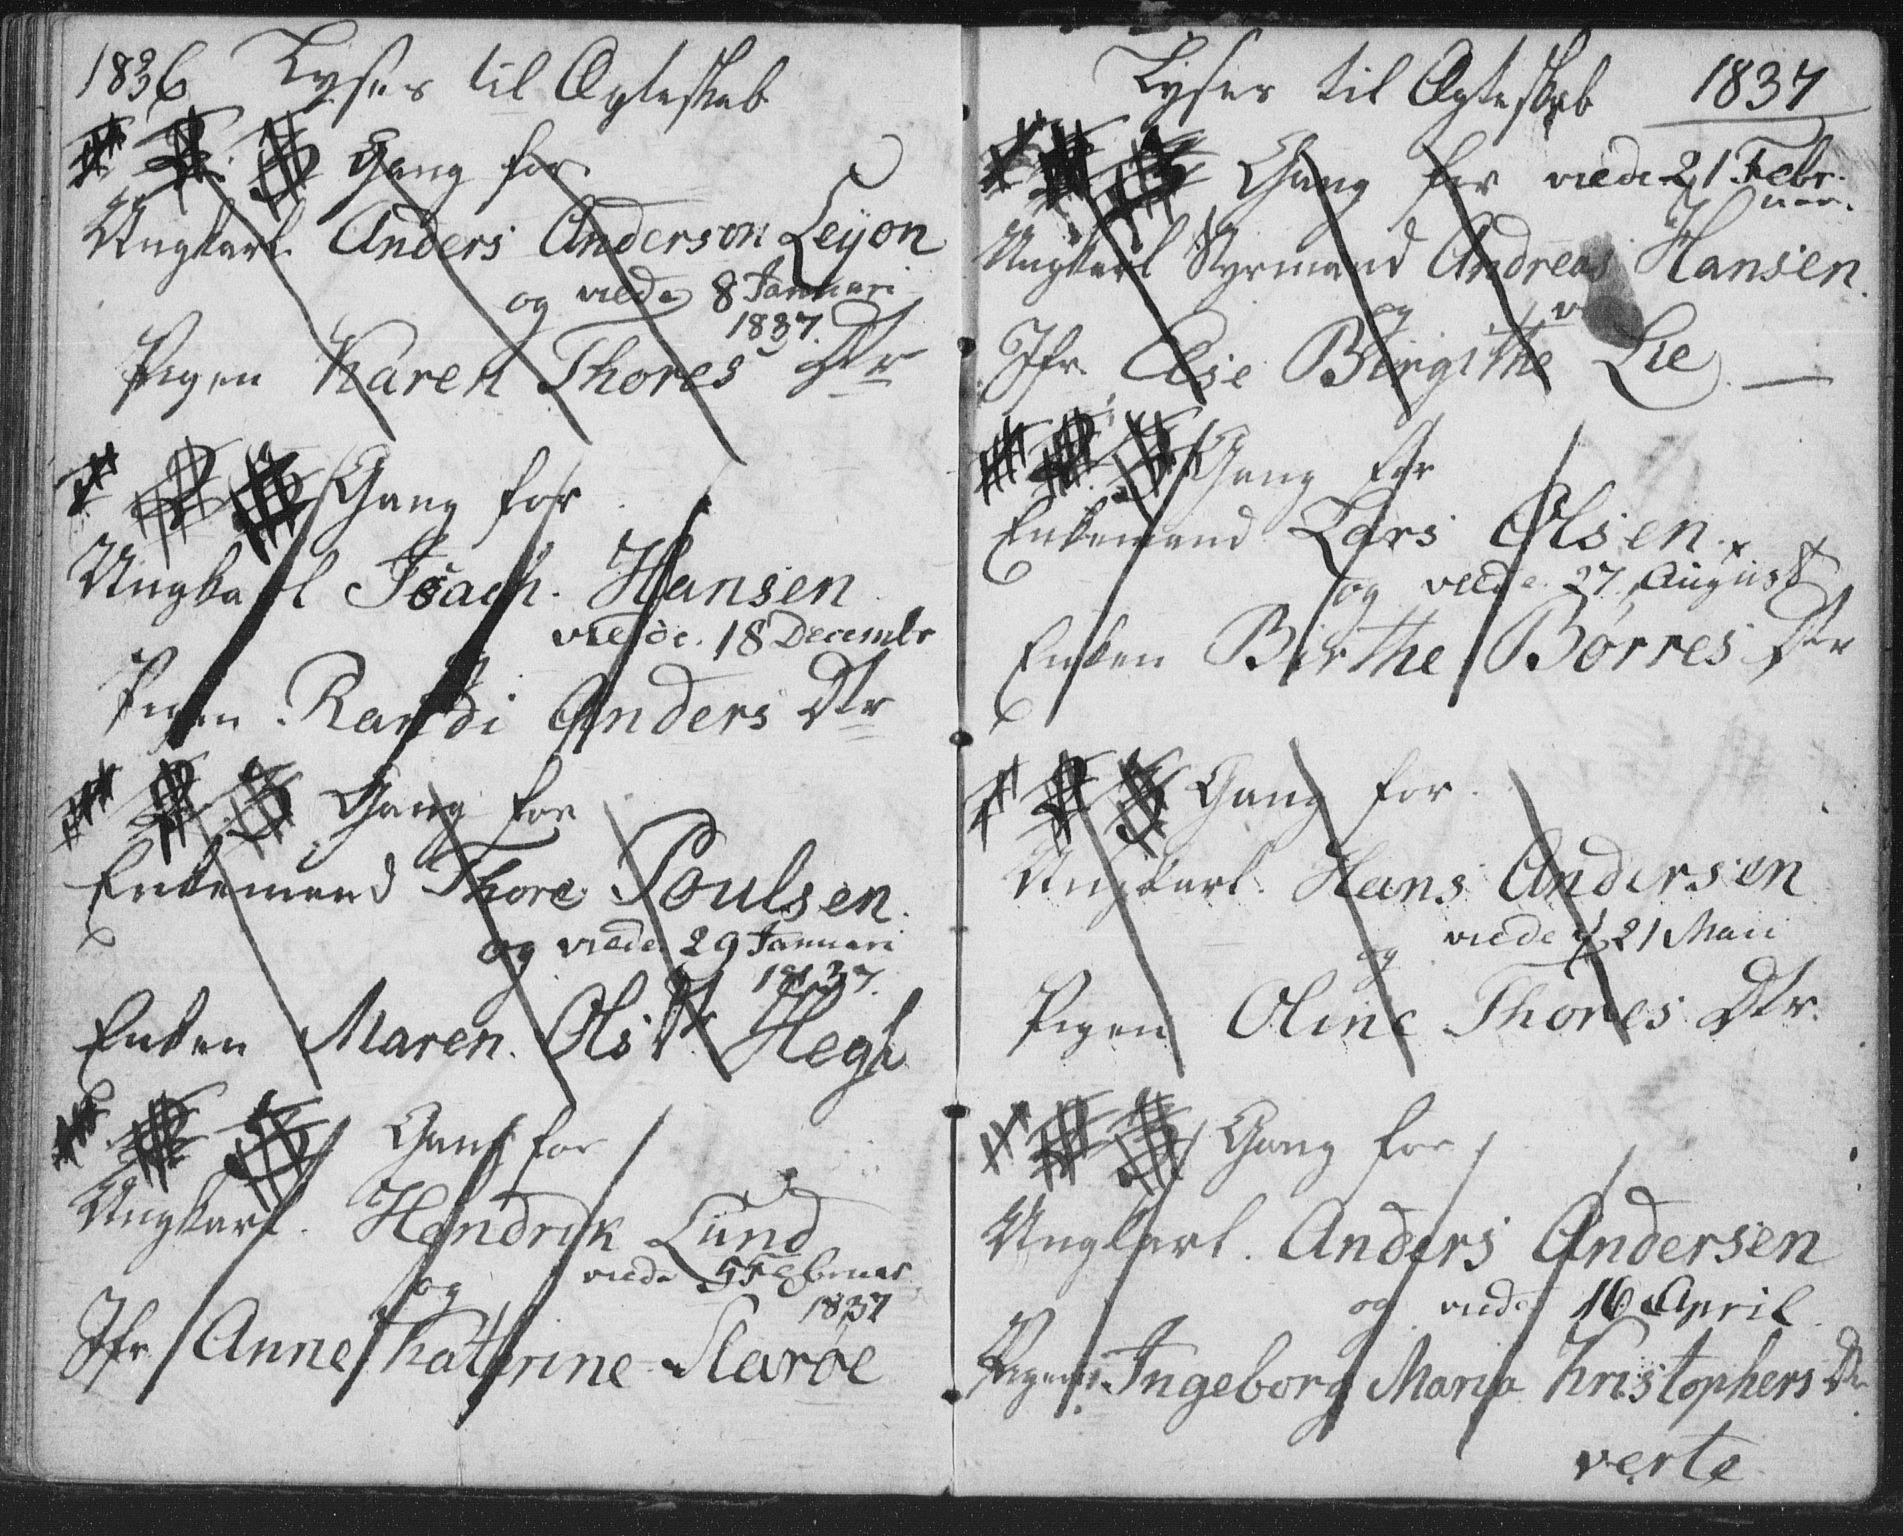 1836 Lyses til Ægteskab
1 2 3 Gang for
Ungkarl Anders Anderson Leyon
og viede 8 Januari
1837.
Pigen Karen Thores Dtr
1 2 3 Gang for
Ungkarl Joach. Hansen
viede. 18 Decembr
Pigen Randi Anders Dtr
1 2 3 Gang for
Enkemand Thore Poulsen
og viede 29 Januari
1837.
Enken Maren Ols Dtr Hegh
1 2 3 Gang for
Ungkarl. Hendrik Lund
og viede 5 Februar
1837
Jfr Anne Katrine Skarøe
Lyses til Ægteskab 1837
1 2 3 Gang for viede 21 Febr.
Ungkarl Styrmand Andreas Hansen
og
Jfr. Else Birgithe Lie
1 2 3 Gang for
Enkemand Lars Olsen
og viede 27 August
Enken Birthe Børres Dtr
1 2 3 Gang for
Ungkarl. Hans Andersen
og viede 21 Mai
Pigen Oline Thores Dtr.
1 2 3 Gang for
Ungkarl. Anders Andersen
og viede 16 April
Pigen Ingeborg Maria Kristophers Dr
verte